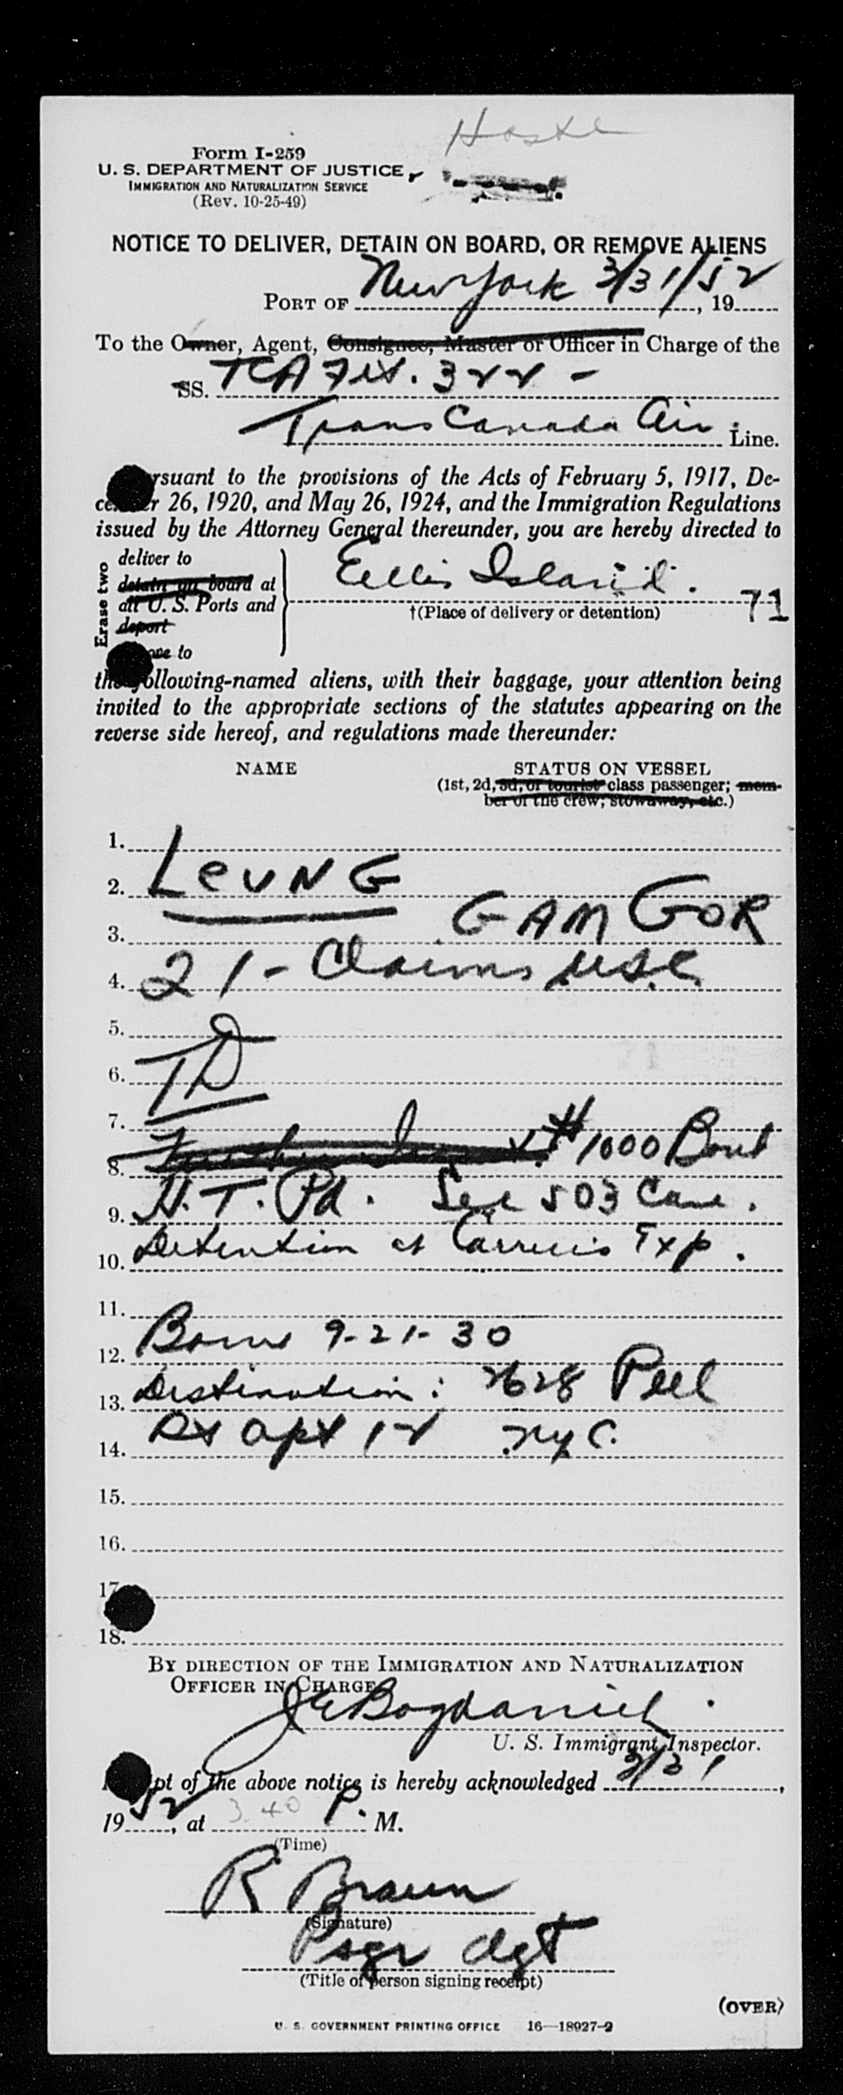 Form I-259
U. S. DEPARTMENT OF JUSTICE
IMMIGRATION AND NATURALIZATION SERVICE
(Rev. 10-25-49)
NOTICE TO DELIVER, DETAIN ON BOARD, OR REMOVE ALIENS
PORT OF New York 3/31/52, 19
To the Owner, Agent, Consignee, Master or Officer in Charge of the
SS. TCA Flt. 322 -
Trans Canada Air Line.
rsuant to the provisions of the Acts of February 5, 1917, De-
ce r 26, 1920, and May 26, 1924, and the Immigration Regulations
issued by the Attorney General thereunder, you are hereby directed to
Erase two
deliver to
detain on board at
all U. S. Ports and
deport
ove to
Ellis Island.
†(Place of delivery or detention)
71
the following-named aliens, with their baggage, your attention being
invited to the appropriate sections of the statutes appearing on the
reverse side hereof, and regulations made thereunder:
NAME STATUS ON VESSEL
(1st, 2d, 3d, or tourist class passenger; mem-
ber of the crew; stowaway, etc.)
1.
2. LEUNG
3. GAM GOR
4. 21 - Claims U.S.C.
5.
6. TD
7.
8. #1000 Bond
9. H.T. Pd. See 503 Case.
10. Detention at Carriers Exp.
11.
12. Born 9-21-30
13. Destination: 2628 Pell
14. St Apt 12 NYC.
15.
16.
17.
18.
BY DIRECTION OF THE IMMIGRATION AND NATURALIZATION
OFFICER IN CHARGE
U. S. Immigrant Inspector.
pt of the above notice is hereby acknowledged 3/31,
1952, at 3.40 P. M.
(Time)
R Braun
(Signature)
Psgr Agt
(Title of person signing receipt)
(OVER)
U. S. GOVERNMENT PRINTING OFFICE 16—18927-2